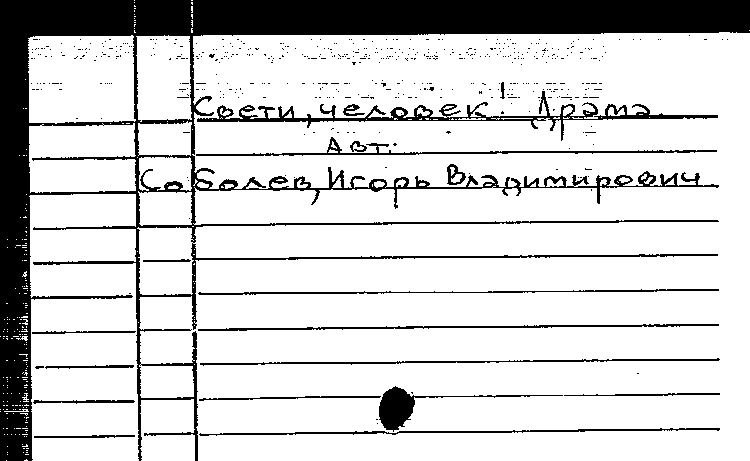 Свети, человек! Драма.
Авт.
Соболев, Игорь Владимирович